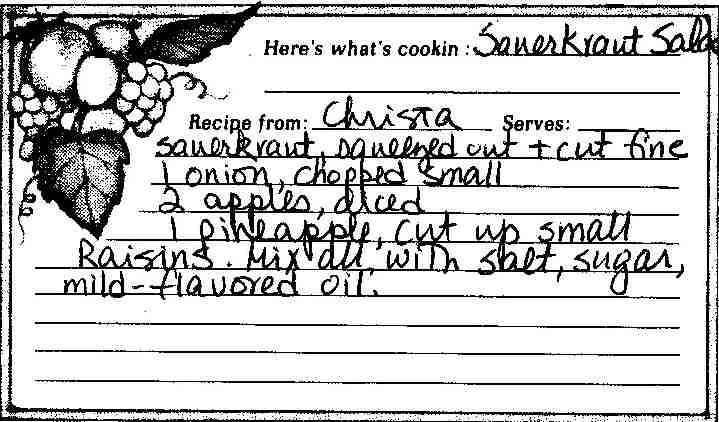 Here's what's cookin: Sauerkraut Salad
Recipe from: Christa Serves:
sauerkraut, squeezed out + cut fine
1 onion, chopped small
2 apples, diced
1 pineapple, cut up small
Raisins. Mix all with salt, sugar,
mild-flavored oil.